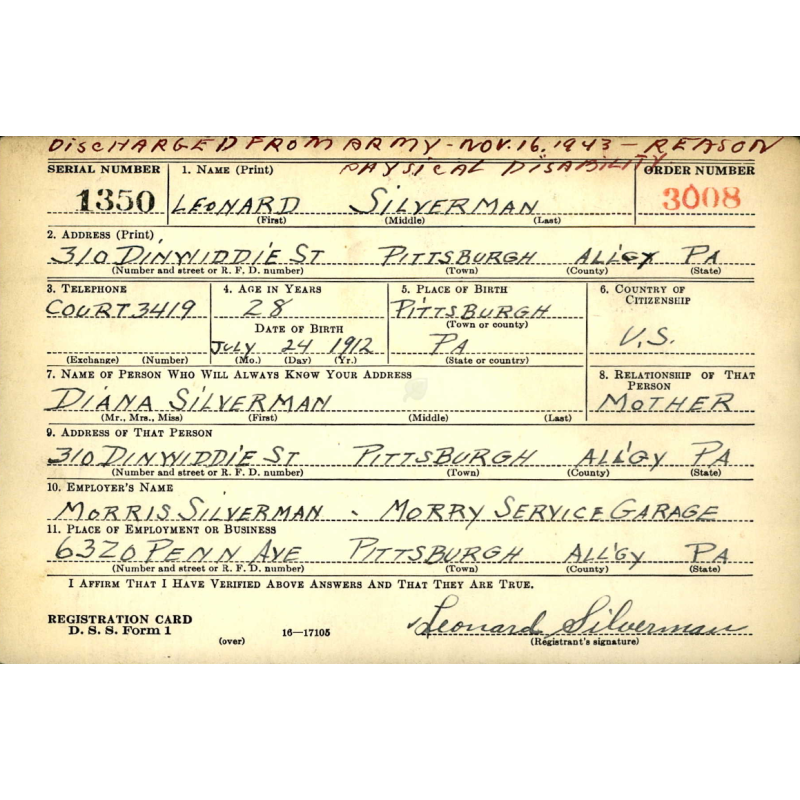 DISCHARGED FROM ARMY - NOV. 16, 1943 - REASON
PHYSICAL DISABILITY
SERIAL NUMBER 1. NAME (Print) ORDER NUMBER
1350 LEONARD SILVERMAN 3008
(First) (Middle) (Last)
2. ADDRESS (Print)
310 DINWIDDIE ST PITTSBURGH ALL'GY PA
(Number and street or R. F. D. number) (Town) (County) (State)
3. TELEPHONE 4. AGE IN YEARS 5. PLACE OF BIRTH 6. COUNTRY OF CITIZENSHIP
COURT 3419 28 PITTSBURGH
(Town or county)
DATE OF BIRTH U.S.
JULY 24 1912 PA
(Exchange) (Number) (Mo.) (Day) (Yr.) (State or country)
7. NAME OF PERSON WHO WILL ALWAYS KNOW YOUR ADDRESS 8. RELATIONSHIP OF THAT PERSON
DIANA SILVERMAN MOTHER
(Mr., Mrs., Miss) (First) (Middle) (Last)
9. ADDRESS OF THAT PERSON
310 DINWIDDIE ST PITTSBURGH ALL'GY PA
(Number and street or R. F. D. number) (Town) (County) (State)
10. EMPLOYER'S NAME
MORRIS SILVERMAN - MORRY SERVICE GARAGE
11. PLACE OF EMPLOYMENT OR BUSINESS
6320 PENN AVE PITTSBURGH ALL'GY PA
(Number and street or R. F. D. number) (Town) (County) (State)
I AFFIRM THAT I HAVE VERIFIED ABOVE ANSWERS AND THAT THEY ARE TRUE.
REGISTRATION CARD
D. S. S. Form 1 16—17105 Leonard Silverman
(over) (Registrant's signature)